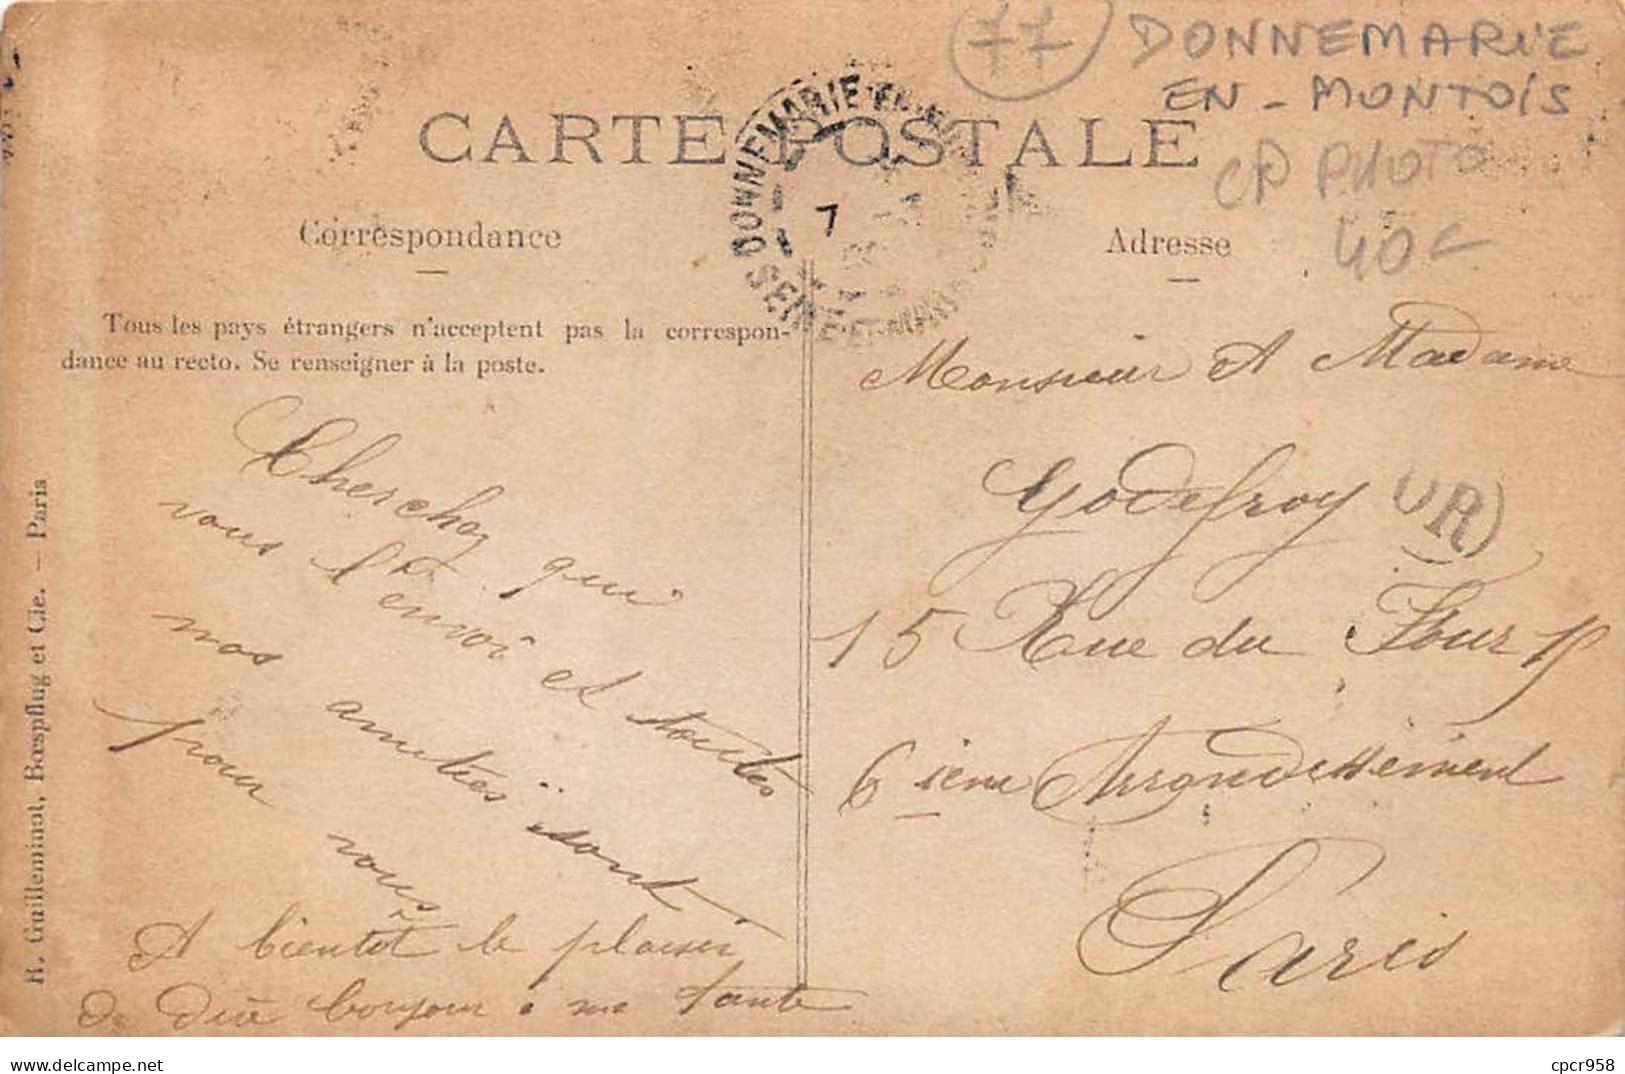 77 DONNEMARIE
EN-MONTOIS
CP PHOTO
40€
CARTE POSTALE
DONNEMARIE-EN-M
SEINE-ET-MARNE
7
Correspondance
Adresse
Tous les pays étrangers n'acceptent pas la correspon-
dance au recto. Se renseigner à la poste.
Cherchez qui
vous l'envoi et toutes
nos amitiés sont
pour vous
A bientôt le plaisir
de dire bonjour a ma tante
Monsieur et Madame
Godefroy
OR
15 Rue du Four 15
6 ième Arrondissement
Paris
R. Guilleminot, Bœspflug et Cie. — Paris
delcampe.net
cpcr958